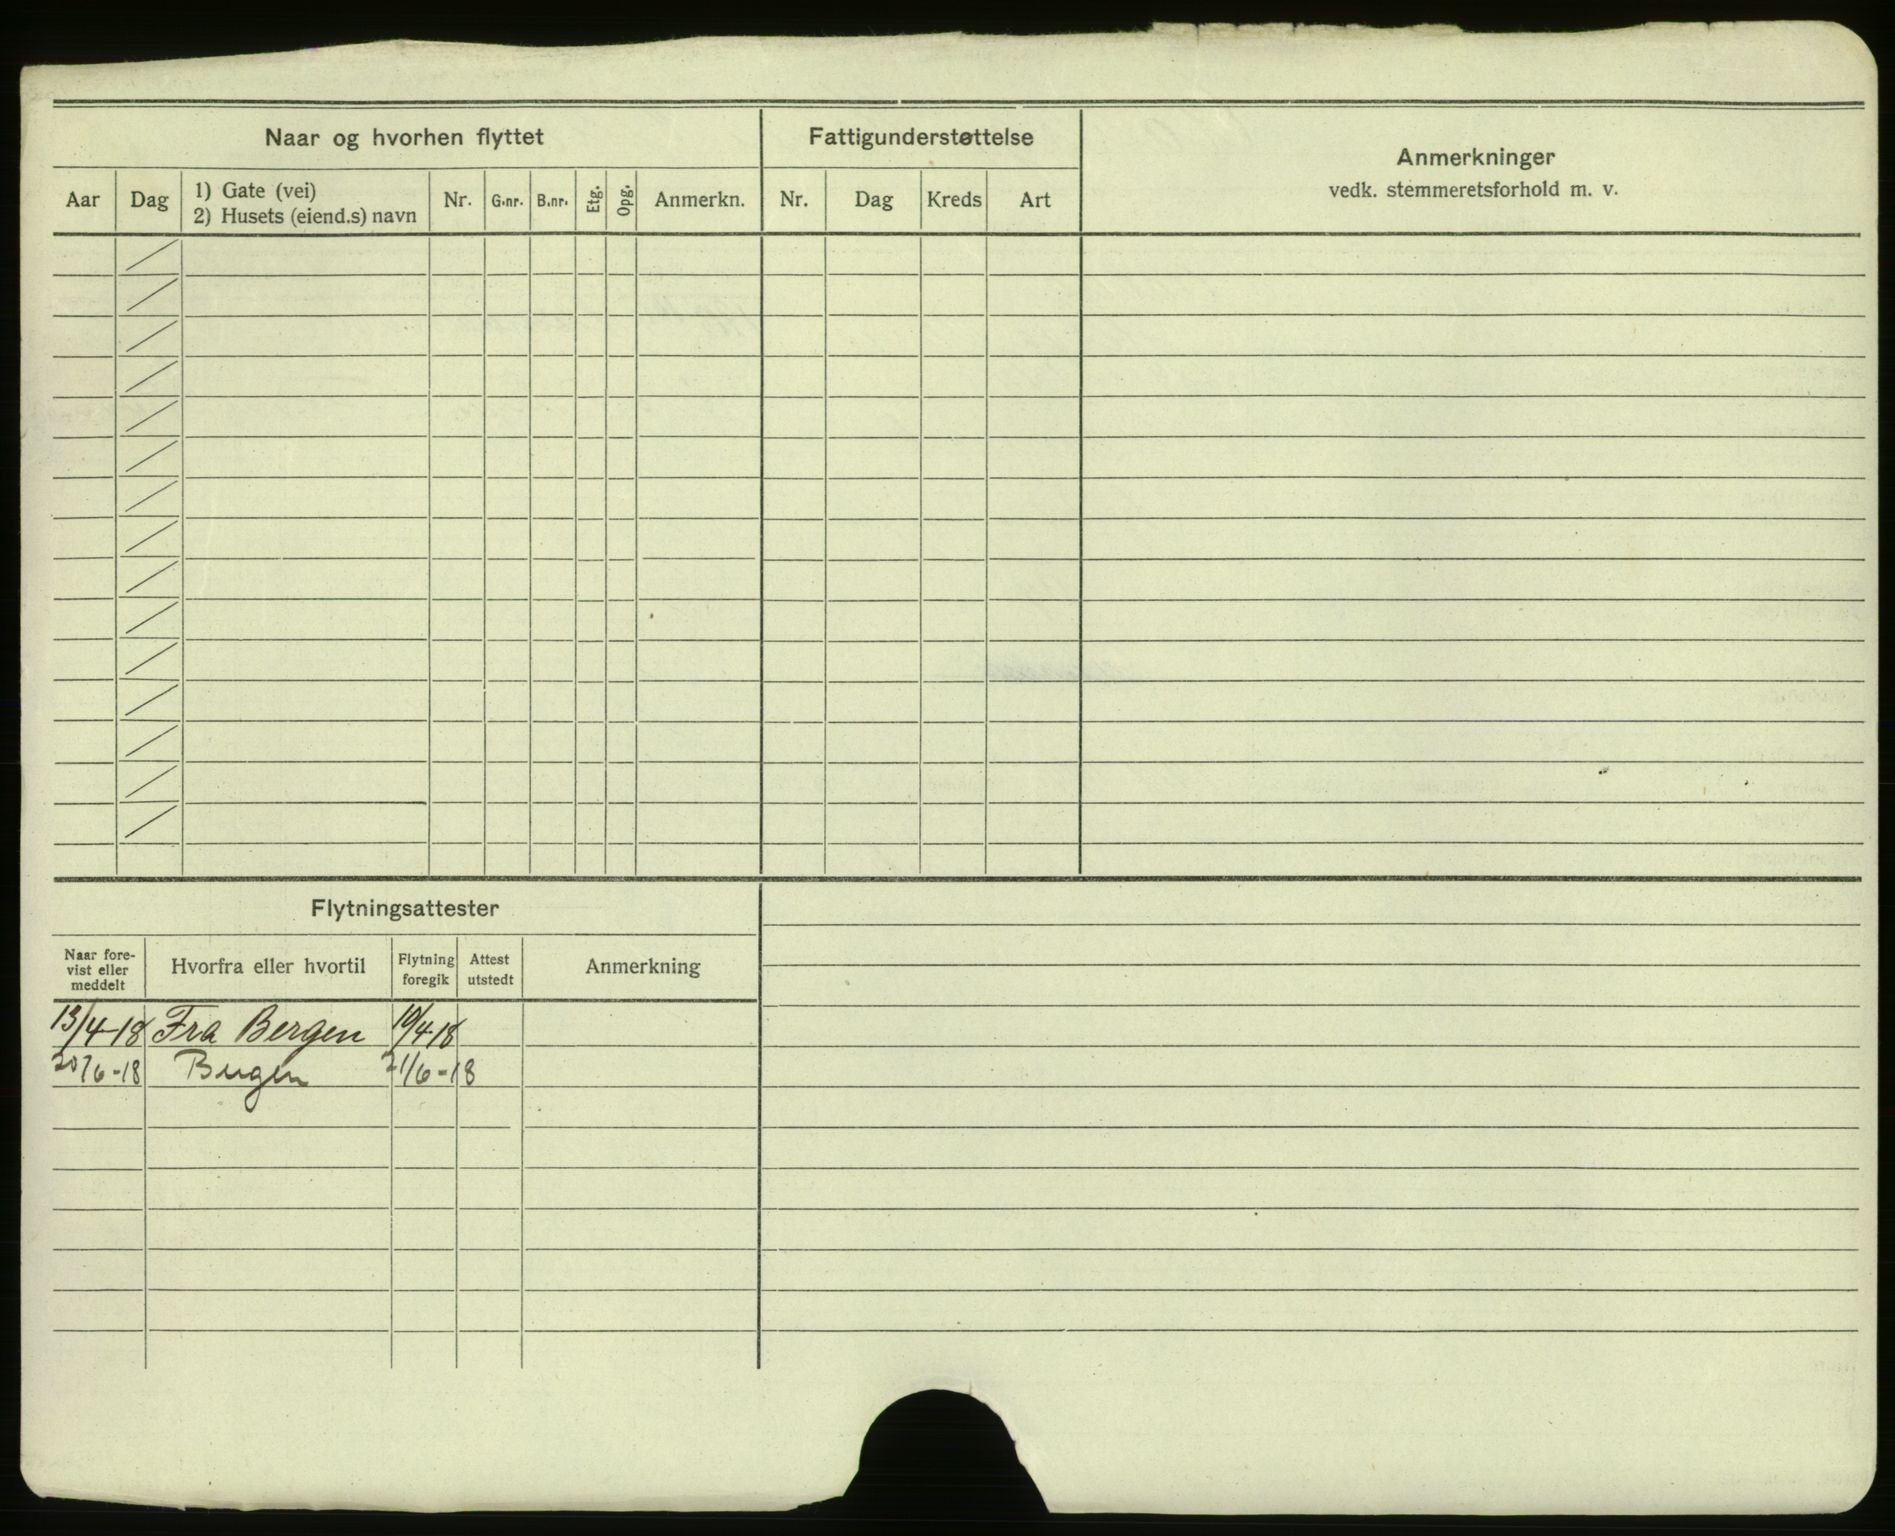 Naar og hvorhen flyttet
Fattigunderstøttelse
Anmerkninger
vedk. stemmeretsforhold m. v.
Aar Dag 1) Gate (vei) 2) Husets (eiend.s) navn Nr. G.nr. B.nr. Etg. Opg. Anmerkn. Nr. Dag Kreds Art
Flytningsattester
Naar fore-
vist eller
meddelt
Hvorfra eller hvortil
Flytning
foregik
Attest
utstedt
Anmerkning
13/4-18 Fra Bergen 10/4 18
20/6-18 Bergen 21/6-18